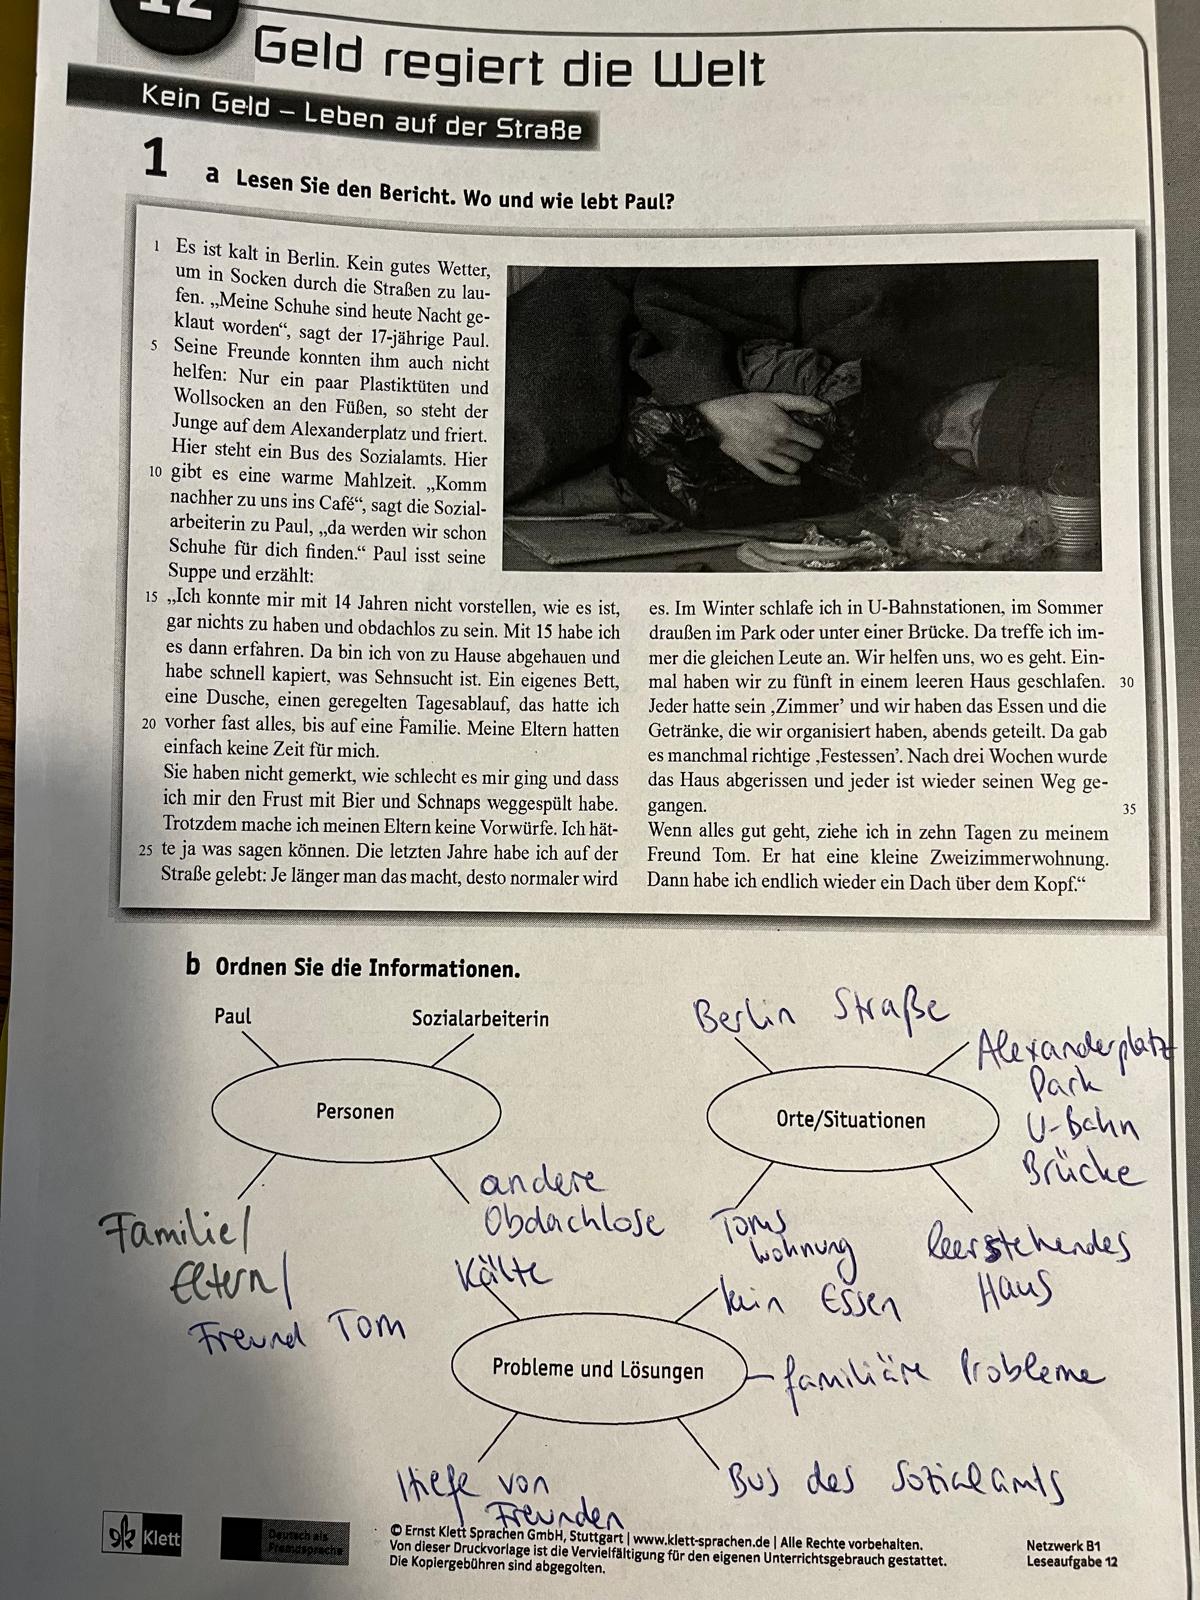 12
Geld regiert die Welt
Kein Geld – Leben auf der Straße
1 a Lesen Sie den Bericht. Wo und wie lebt Paul?
1 Es ist kalt in Berlin. Kein gutes Wetter,
um in Socken durch die Straßen zu lau-
fen. „Meine Schuhe sind heute Nacht ge-
klaut worden“, sagt der 17-jährige Paul.
5 Seine Freunde konnten ihm auch nicht
helfen: Nur ein paar Plastiktüten und
Wollsocken an den Füßen, so steht der
Junge auf dem Alexanderplatz und friert.
Hier steht ein Bus des Sozialamts. Hier
10 gibt es eine warme Mahlzeit. „Komm
nachher zu uns ins Café“, sagt die Sozial-
arbeiterin zu Paul, „da werden wir schon
Schuhe für dich finden.“ Paul isst seine
Suppe und erzählt:
15 „Ich konnte mir mit 14 Jahren nicht vorstellen, wie es ist,
gar nichts zu haben und obdachlos zu sein. Mit 15 habe ich
es dann erfahren. Da bin ich von zu Hause abgehauen und
habe schnell kapiert, was Sehnsucht ist. Ein eigenes Bett,
eine Dusche, einen geregelten Tagesablauf, das hatte ich
20 vorher fast alles, bis auf eine Familie. Meine Eltern hatten
einfach keine Zeit für mich.
Sie haben nicht gemerkt, wie schlecht es mir ging und dass
ich mir den Frust mit Bier und Schnaps weggespült habe.
Trotzdem mache ich meinen Eltern keine Vorwürfe. Ich hät-
25 te ja was sagen können. Die letzten Jahre habe ich auf der
Straße gelebt: Je länger man das macht, desto normaler wird
es. Im Winter schlafe ich in U-Bahnstationen, im Sommer
draußen im Park oder unter einer Brücke. Da treffe ich im-
mer die gleichen Leute an. Wir helfen uns, wo es geht. Ein-
mal haben wir zu fünft in einem leeren Haus geschlafen. 30
Jeder hatte sein ‚Zimmer’ und wir haben das Essen und die
Getränke, die wir organisiert haben, abends geteilt. Da gab
es manchmal richtige ‚Festessen’. Nach drei Wochen wurde
das Haus abgerissen und jeder ist wieder seinen Weg ge-
gangen. 35
Wenn alles gut geht, ziehe ich in zehn Tagen zu meinem
Freund Tom. Er hat eine kleine Zweizimmerwohnung.
Dann habe ich endlich wieder ein Dach über dem Kopf.“
b Ordnen Sie die Informationen.
Paul
Sozialarbeiterin
Personen
Familie/
Eltern/
Freund Tom
andere
Obdachlose
Berlin Straße
Alexanderplatz
Park
U-Bahn
Brücke
Orte/Situationen
Toms
Wohnung
leerstehendes
Haus
Kälte
kein Essen
Probleme und Lösungen
familiäre Probleme
Hielfe von
Freunden
Bus des Sozialamts
Klett
Deutsch als
Fremdsprache
© Ernst Klett Sprachen GmbH, Stuttgart | www.klett-sprachen.de | Alle Rechte vorbehalten.
Von dieser Druckvorlage ist die Vervielfältigung für den eigenen Unterrichtsgebrauch gestattet.
Die Kopiergebühren sind abgegolten.
Netzwerk B1
Leseaufgabe 12